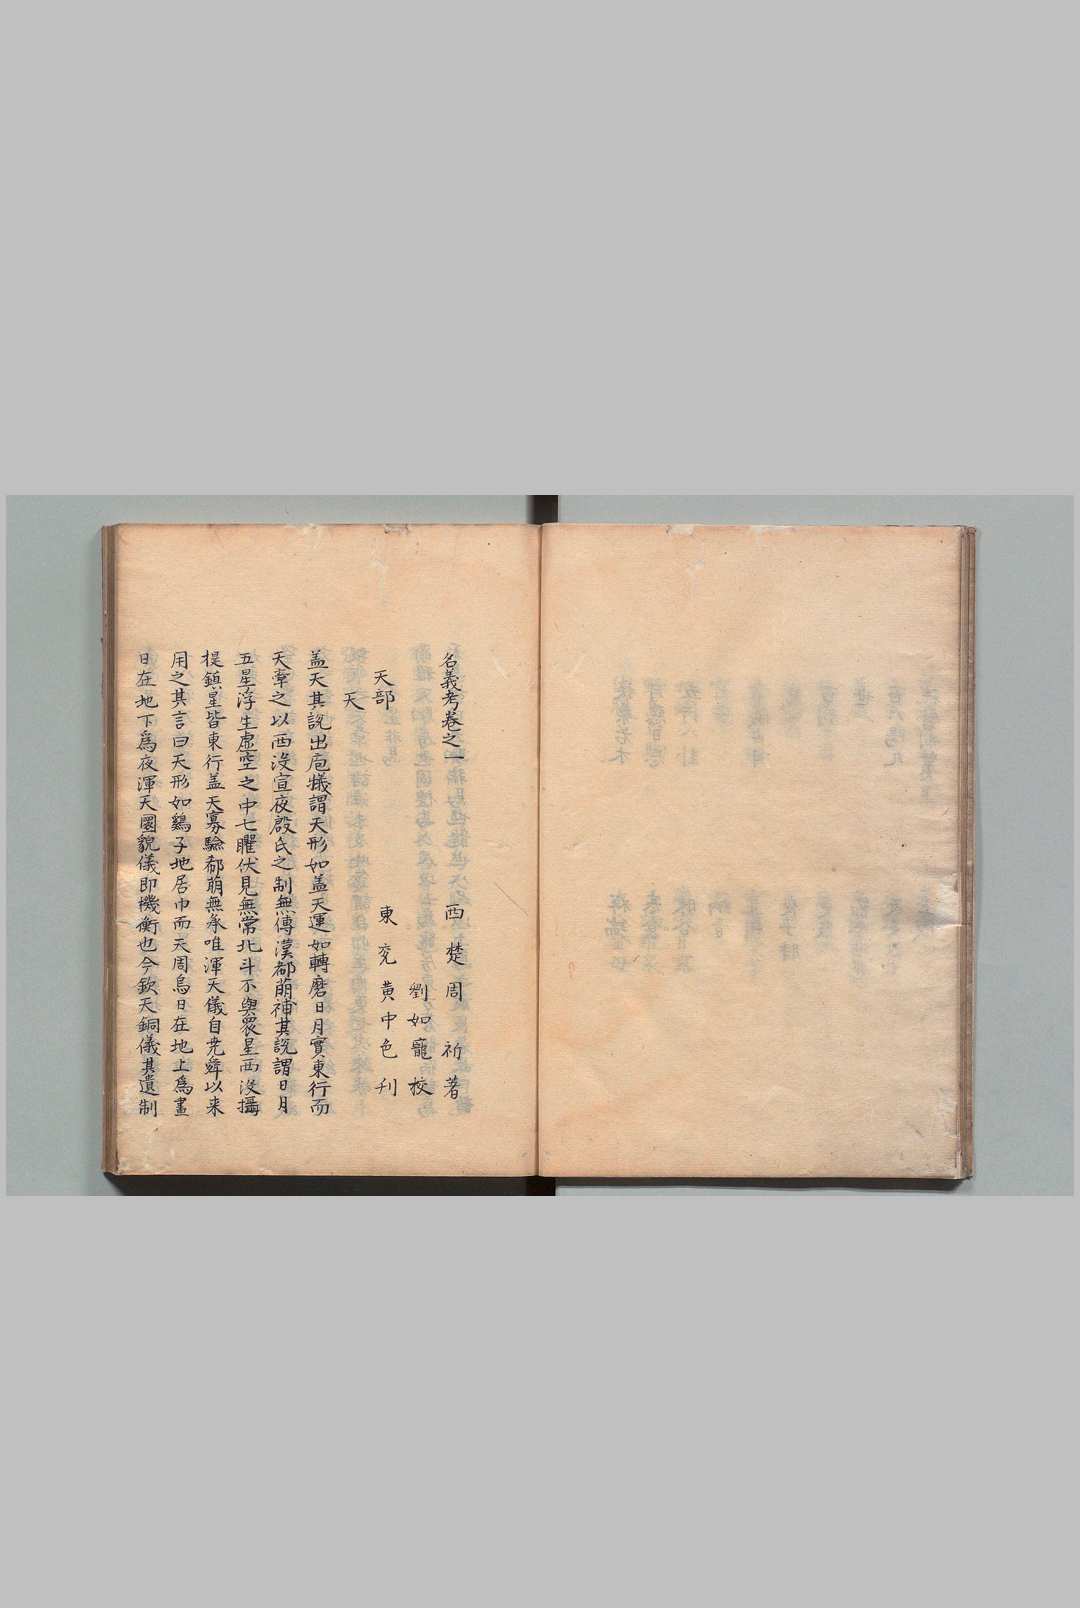 名義考卷之一
西楚周祈著
劉如寵校
天部
東兗黄中色刋
天
盖天其說出庖犧謂天形如盖天運如轉磨日月實東行而
天牽之以西沒宣夜殷氏之制無傳漢郗萠補其說謂日月
五星浮生虛空之中七曜伏見無常北斗不與衆星西沒攝
提鎮星皆東行盖天寡驗郗萠無承唯渾天儀自尭舜以来
用之其言曰天形如鷄子地居中而天周焉日在地上爲晝
日在地下爲夜渾天圜貌儀即機衡也今欽天銅儀其遺制